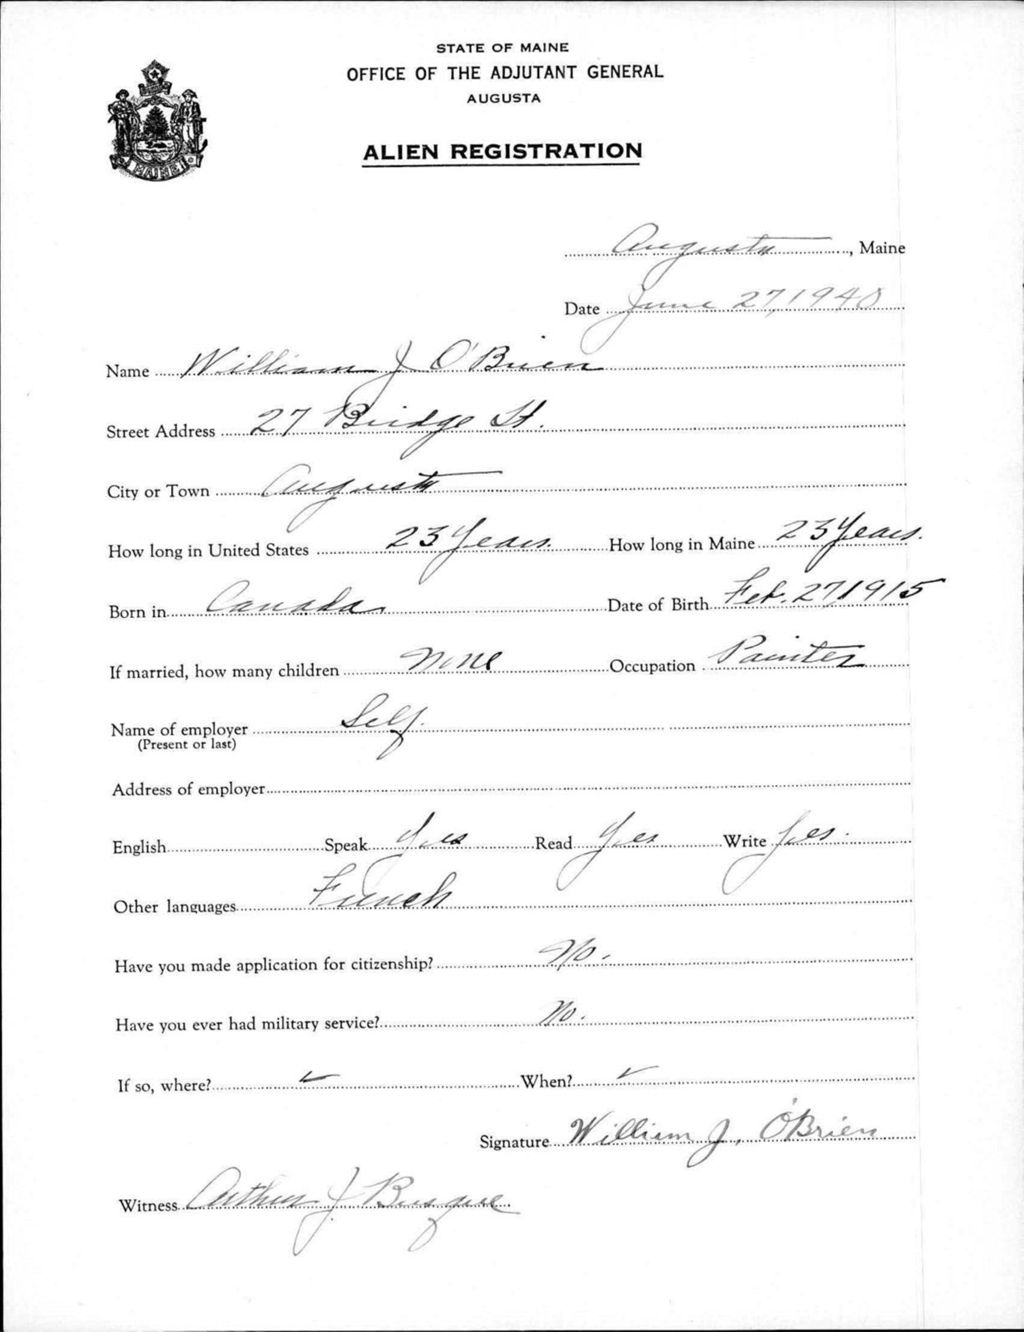 STATE OF MAINE
OFFICE OF THE ADJUTANT GENERAL
AUGUSTA
ALIEN REGISTRATION
MAINE
Augusta, Maine
Date June 27, 1940
Name William J O'Brien
Street Address 27 Bridge St.
City or Town Augusta
How long in United States 23 Years. How long in Maine 23 Years.
Born in Canada Date of Birth Feb. 27, 1915
If married, how many children None Occupation Painter
Name of employer Self.
(Present or last)
Address of employer
English Speak Yes Read Yes Write Yes.
Other languages French
Have you made application for citizenship? No.
Have you ever had military service? No.
If so, where? ✓ When? ✓
Signature William J. O'Brien
Witness Arthur J. Busque